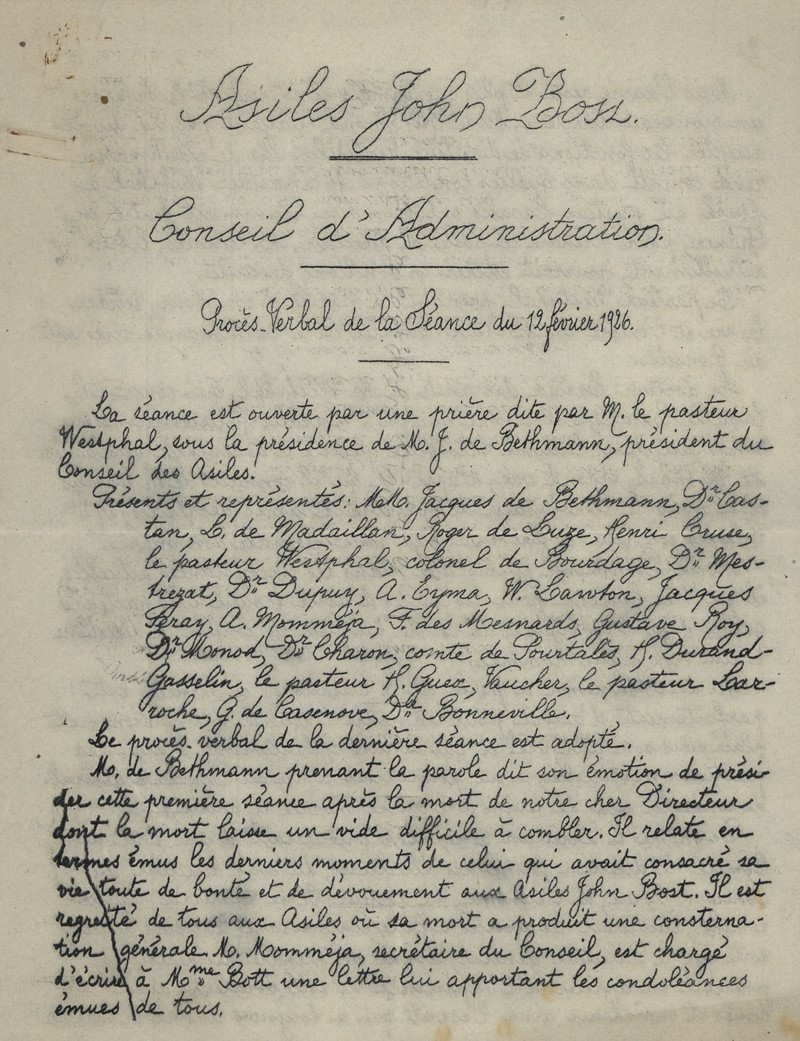 Asiles John Bost.
Conseil d'Administration.
Procès-Verbal de la Séance du 12 février 1926.
La séance est ouverte par une prière dite par M. le pasteur
Westphal, sous la présidence de M. J. de Bethmann, président du
Conseil des Asiles.
Présents et représentés: M.M. Jacques de Bethmann, Dr Cas-
tan, L. de Madaillan, Roger de Luze, Henri Cruse,
le pasteur Westphal, colonel de Bourdage, Dr Mes-
trezat, Dr Dupuy, A. Eyma, W. Lawton, Jacques
Feray, A. Momméja, F. des Mesnards, Gustave Roy,
Dr Monod, Dr Charon, comte de Pourtalès, H. Durand-
Gasselin, le pasteur H. Guex, Vaucher, le pasteur Lar-
roche, G. de Casenove, Dr Bonneville.
Le procès-verbal de la dernière séance est adopté.
M. de Bethmann prenant la parole dit son émotion de prési-
der cette première séance après la mort de notre cher Directeur
dont la mort laisse un vide difficile à combler. Il relate en
termes émus les derniers moments de celui qui avait consacré sa
vie toute de bonté et de dévouement aux Asiles John Bost. Il est
regretté de tous aux Asiles où sa mort a produit une consterna-
tion générale. M. Momméja, secrétaire du Conseil, est chargé
d'écrire à Mme Bott une lettre lui apportant les condoléances
émues de tous.